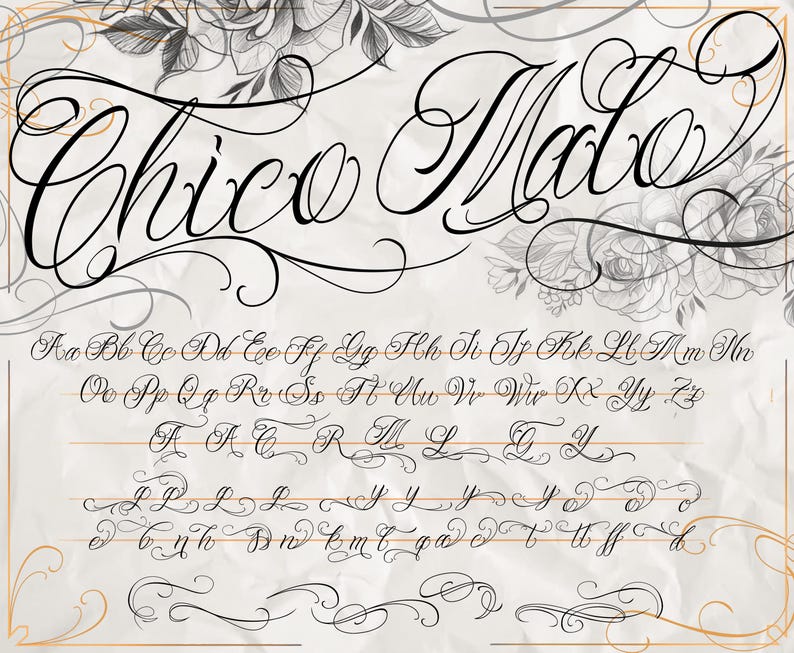 Chico Malo
Aa Bb Cc Dd Ee Ff Gg Hh Ii Jj Kk Ll Mm Nn
Oo Pp Qq Rr Ss Tt Uu Vv Ww Xx Yy Zz
A A C R M L G Y
g g g g y y y y o o o
e b n h s n k m t g a c t tt ff d